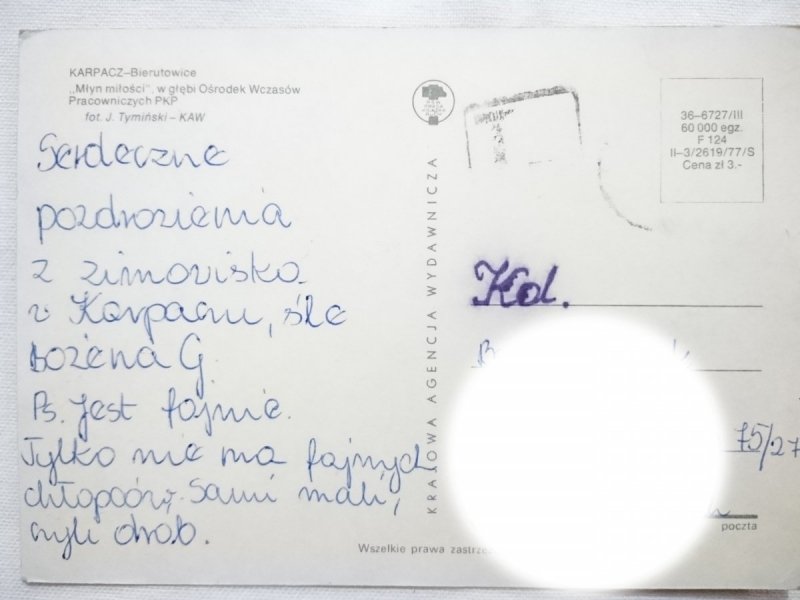 KARPACZ–Bierutowice
„Młyn miłości”, w głębi Ośrodek Wczasów
Pracowniczych PKP
fot. J. Tymiński – KAW
Serdeczne
pozdrozienia
z zimoviska
v Karpaczu, śle
Bożena G.
Ps. Jest fajnie.
Tylko nie ma fajnych
chłopców. Sami mali,
czyli drób.
KRAJOWA AGENCJA WYDAWNICZA
36–6727/III
60 000 egz.
F 124
II–3/2619/77/S
Cena zł 3.-
Kol.
75/27
poczta
Wszelkie prawa